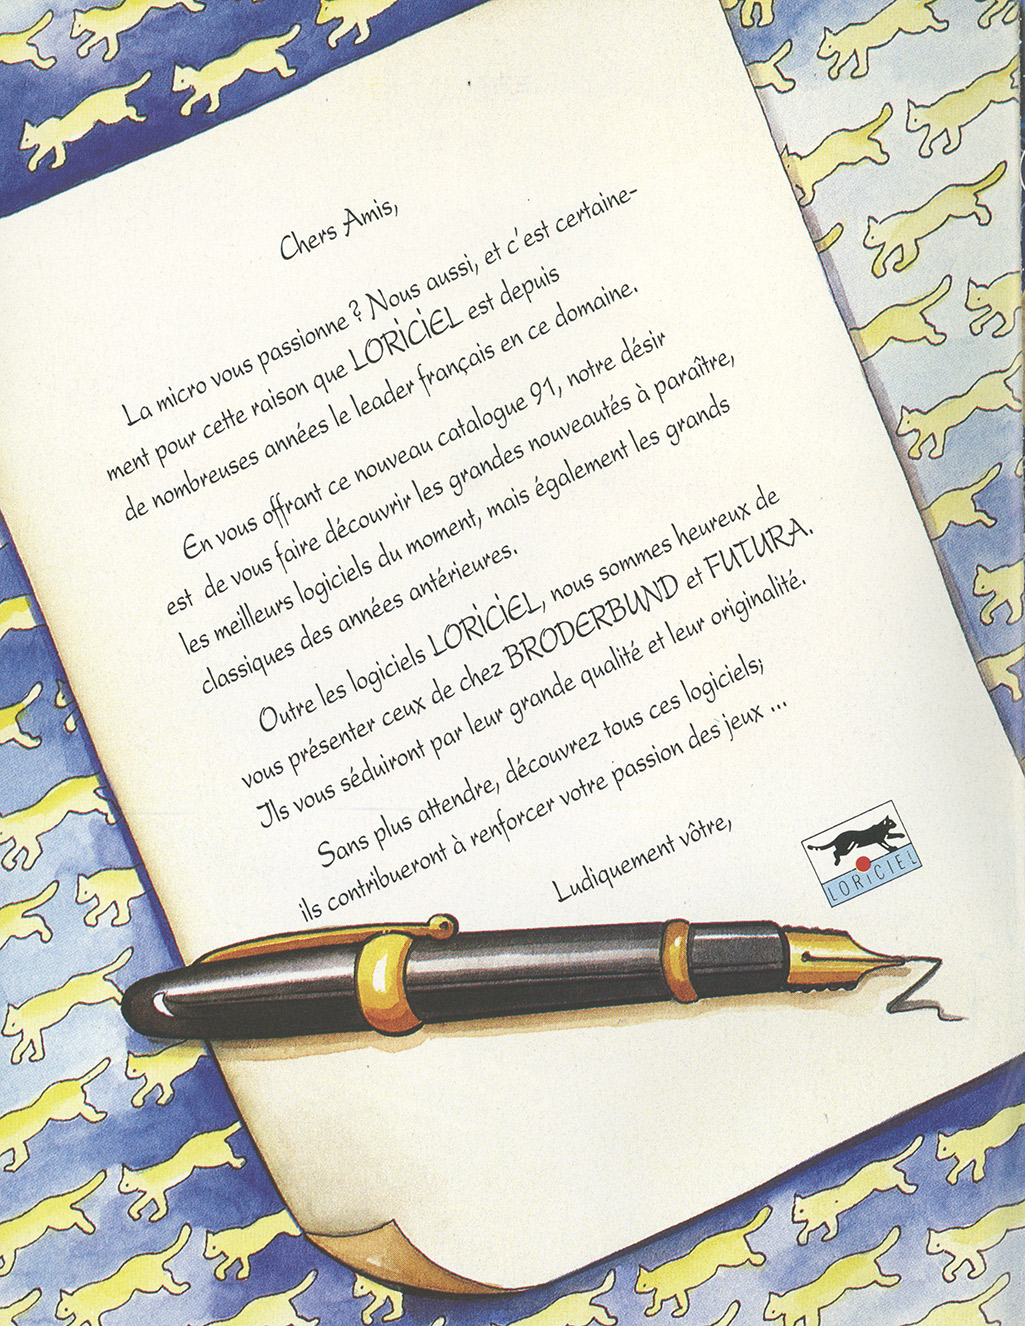 Chers Amis,
La micro vous passionne ? Nous aussi, et c'est certaine-
ment pour cette raison que LORICIEL est depuis
de nombreuses années le leader français en ce domaine.
En vous offrant ce nouveau catalogue 91, notre désir
est de vous faire découvrir les grandes nouveautés à paraître,
les meilleurs logiciels du moment, mais également les grands
classiques des années antérieures.
Outre les logiciels LORICIEL, nous sommes heureux de
vous présenter ceux de chez BRODERBUND et FUTURA.
Ils vous séduiront par leur grande qualité et leur originalité.
Sans plus attendre, découvrez tous ces logiciels;
ils contribueront à renforcer votre passion des jeux ...
Ludiquement vôtre,
LORICIEL